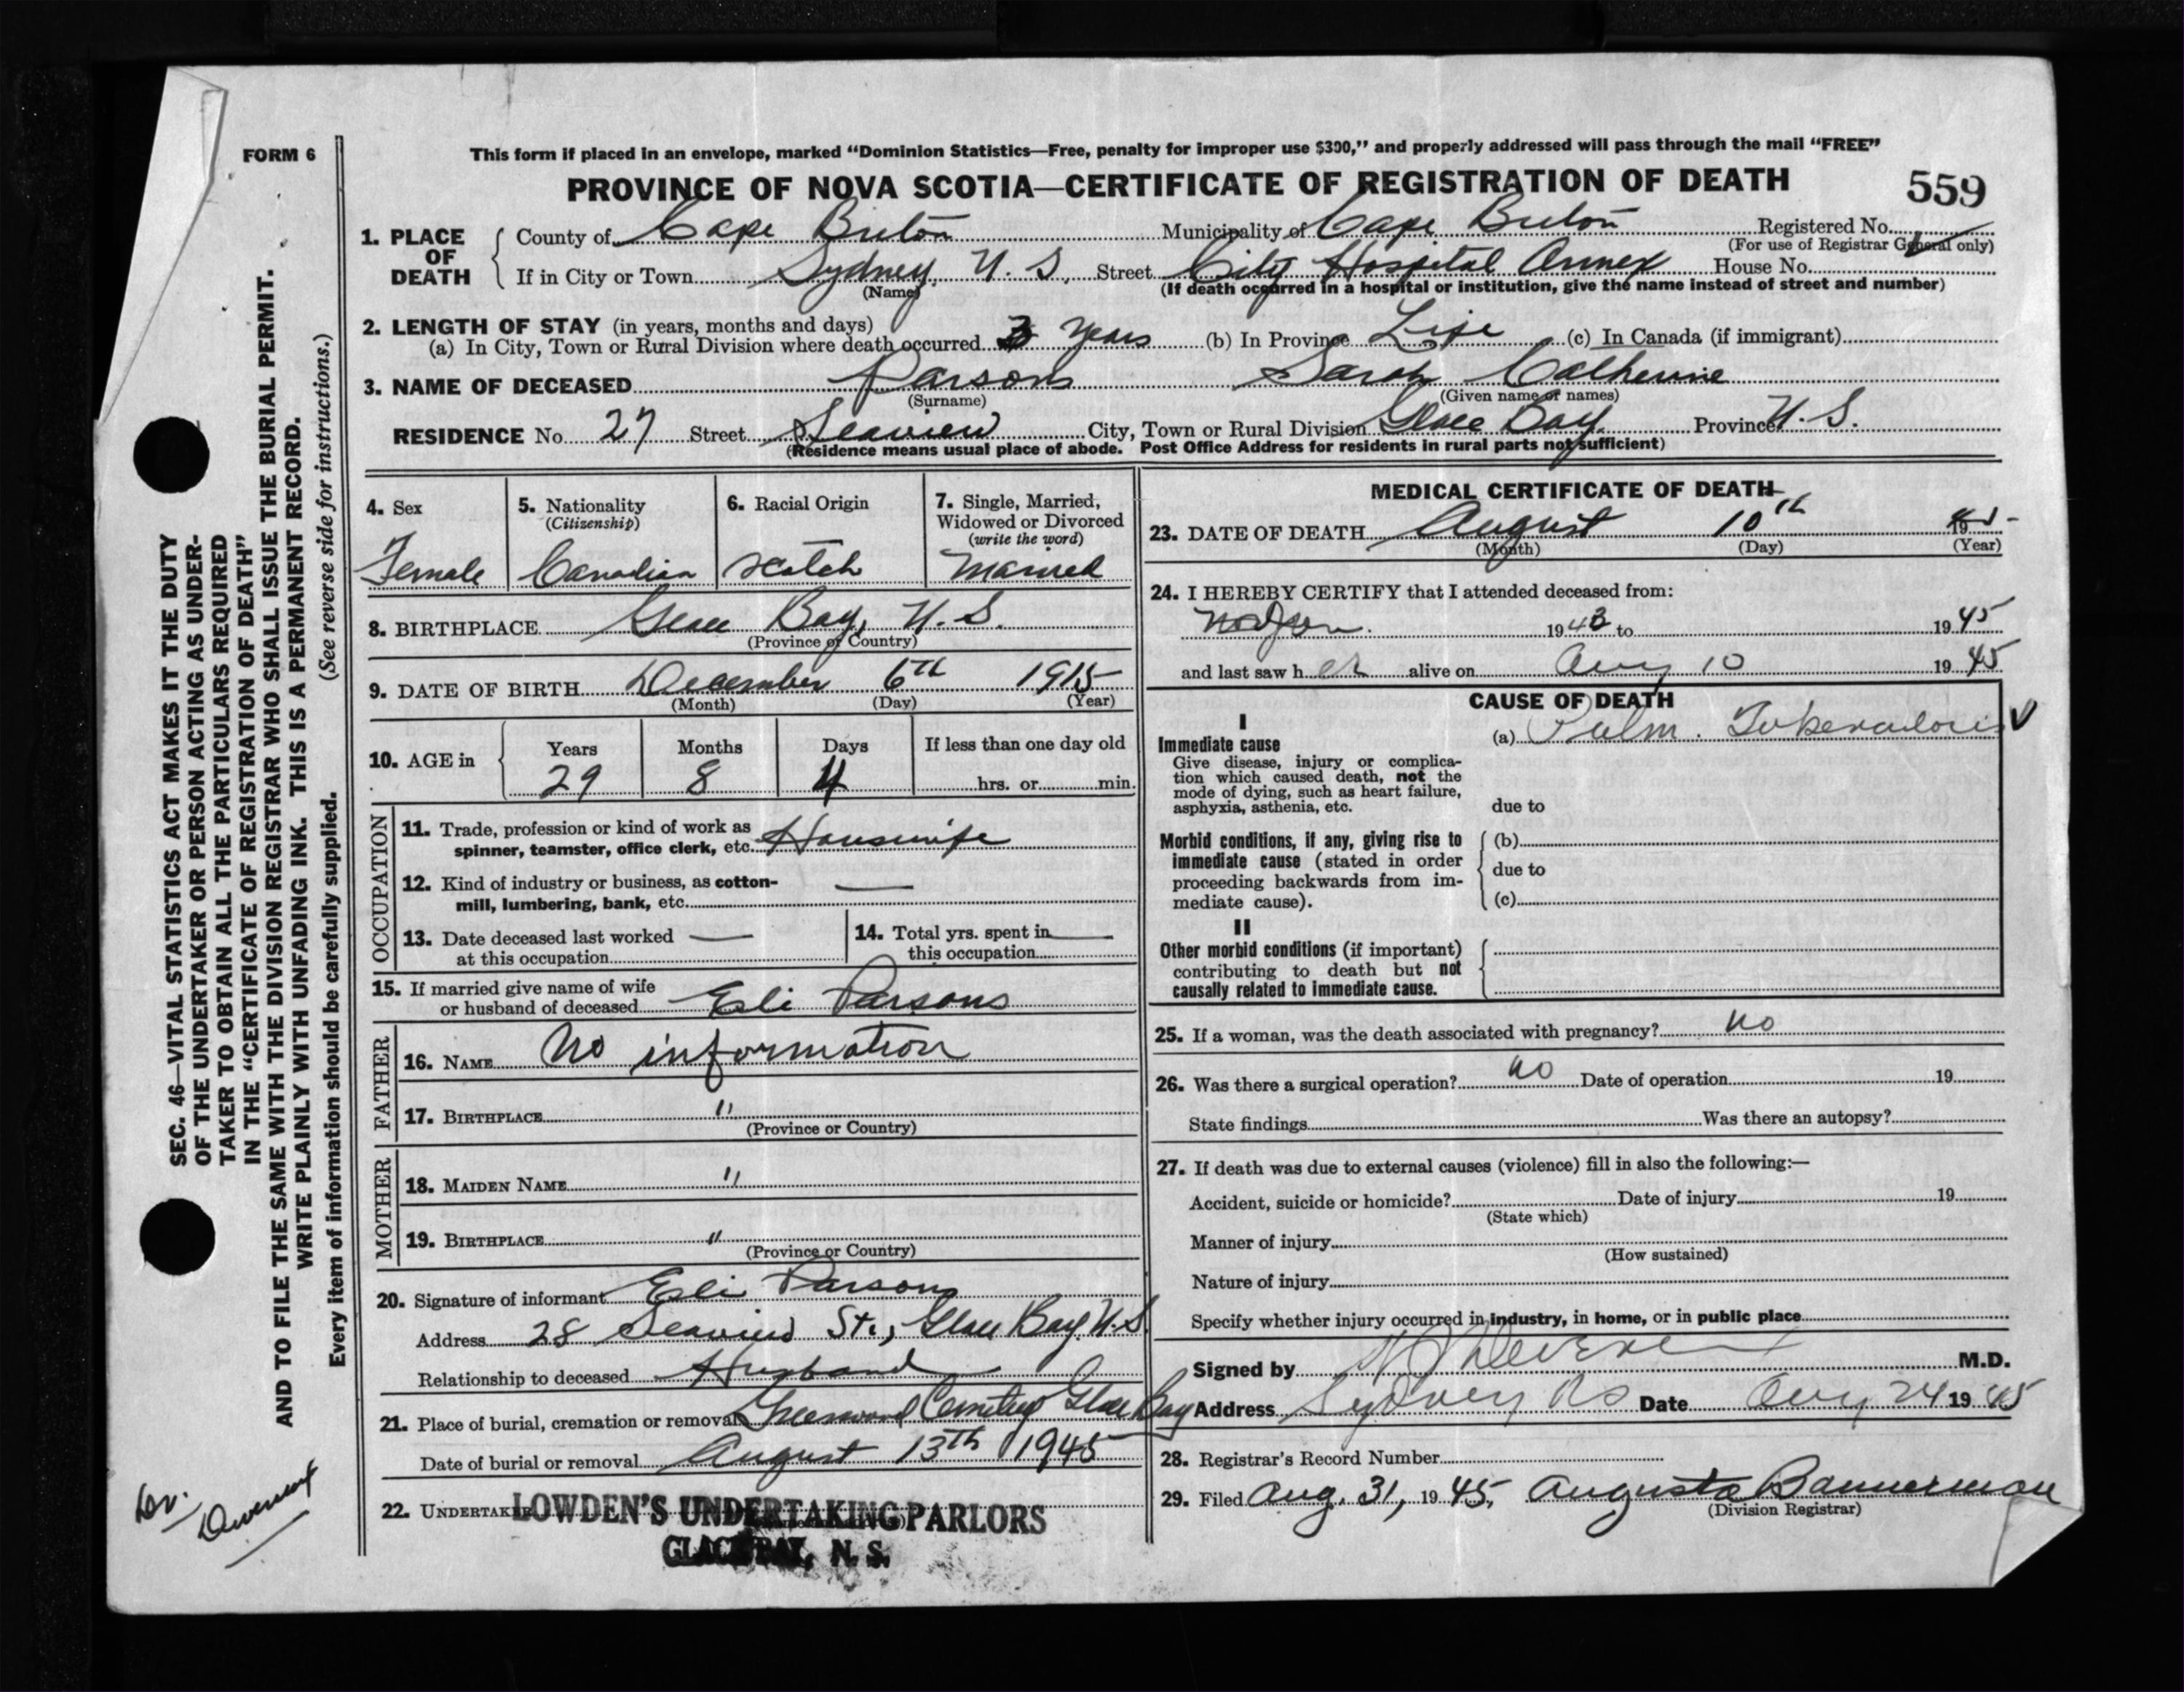 FORM 6
This form if placed in an envelope, marked “Dominion Statistics—Free, penalty for improper use $300,” and properly addressed will pass through the mail “FREE”
PROVINCE OF NOVA SCOTIA—CERTIFICATE OF REGISTRATION OF DEATH
559
1. PLACE OF DEATH
County of Cape Breton Municipality of Cape Breton Registered No.
(For use of Registrar General only)
If in City or Town Sydney, N. S. Street City Hospital Annex House No.
(Name) (If death occurred in a hospital or institution, give the name instead of street and number)
2. LENGTH OF STAY (in years, months and days)
(a) In City, Town or Rural Division where death occurred 3 years (b) In Province Life (c) In Canada (if immigrant)
3. NAME OF DECEASED Parsons Sarah Catherine
(Surname) (Given name or names)
RESIDENCE No. 27 Street Seaview City, Town or Rural Division Glace Bay Province N. S.
(Residence means usual place of abode. Post Office Address for residents in rural parts not sufficient)
4. Sex
Female
5. Nationality
(Citizenship)
Canadian
6. Racial Origin
Scotch
7. Single, Married,
Widowed or Divorced
(write the word)
Married
8. BIRTHPLACE Glace Bay, N. S.
(Province or Country)
9. DATE OF BIRTH December 6th 1915
(Month) (Day) (Year)
10. AGE in
Years Months Days If less than one day old
29 8 4 hrs. or min.
OCCUPATION
11. Trade, profession or kind of work as
spinner, teamster, office clerk, etc. Housewife
12. Kind of industry or business, as cotton-
mill, lumbering, bank, etc. —
13. Date deceased last worked —
at this occupation
14. Total yrs. spent in —
this occupation
15. If married give name of wife
or husband of deceased Esli Parsons
FATHER
16. NAME No information
17. BIRTHPLACE "
(Province or Country)
MOTHER
18. MAIDEN NAME "
19. BIRTHPLACE "
(Province or Country)
20. Signature of informant Esli Parsons
Address 28 Seaview St., Glace Bay N.S
Relationship to deceased Husband
21. Place of burial, cremation or removal Greenwood Cemetery Glace Bay
Date of burial or removal August 13th 1945
22. UNDERTAKER LOWDEN'S UNDERTAKING PARLORS
GLACE BAY, N. S.
MEDICAL CERTIFICATE OF DEATH
23. DATE OF DEATH August 10th
(Month) (Day) (Year)
24. I HEREBY CERTIFY that I attended deceased from:
1943 to 1945
and last saw her alive on Aug 10 1945
CAUSE OF DEATH
I
Immediate cause
Give disease, injury or complica-
tion which caused death, not the
mode of dying, such as heart failure,
asphyxia, asthenia, etc.
(a) Pulm. Tuberculosis
due to
Morbid conditions, if any, giving rise to
immediate cause (stated in order
proceeding backwards from im-
mediate cause).
(b)
due to
(c)
II
Other morbid conditions (if important)
contributing to death but not
causally related to immediate cause.
25. If a woman, was the death associated with pregnancy? No
26. Was there a surgical operation? No Date of operation 19
State findings Was there an autopsy?
27. If death was due to external causes (violence) fill in also the following:—
Accident, suicide or homicide? Date of injury 19
(State which)
Manner of injury
(How sustained)
Nature of injury
Specify whether injury occurred in industry, in home, or in public place
Signed by M.D.
Address Sydney NS Date Aug 24 1945
28. Registrar's Record Number
29. Filed Aug. 31, 1945, Augusta Bannerman
(Division Registrar)
SEC. 46—VITAL STATISTICS ACT MAKES IT THE DUTY
OF THE UNDERTAKER OR PERSON ACTING AS UNDER-
TAKER TO OBTAIN ALL THE PARTICULARS REQUIRED
IN THE “CERTIFICATE OF REGISTRATION OF DEATH”
AND TO FILE THE SAME WITH THE DIVISION REGISTRAR WHO SHALL ISSUE THE BURIAL PERMIT.
WRITE PLAINLY WITH UNFADING INK. THIS IS A PERMANENT RECORD.
Every item of information should be carefully supplied. (See reverse side for instructions.)
Dr.